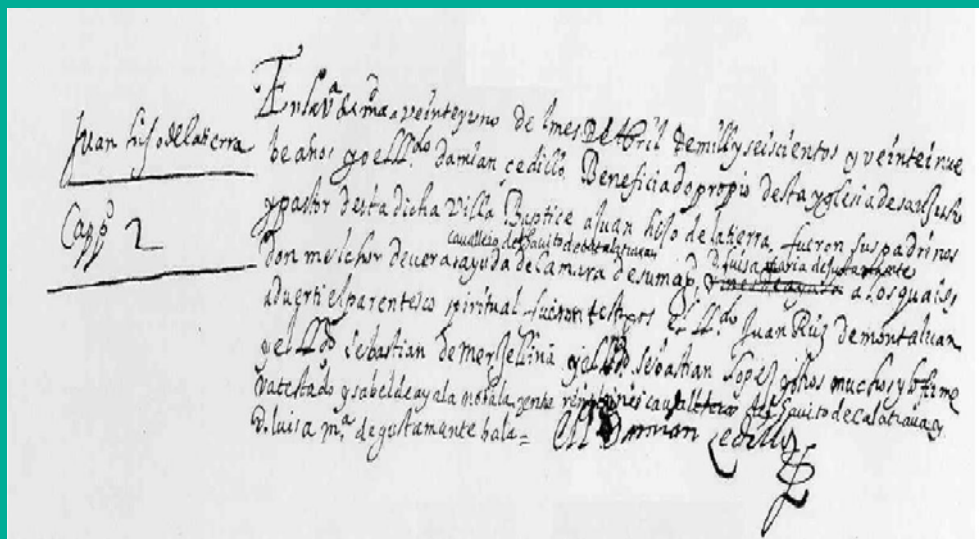 Juan hijo de la tierra
Capp.º 2
En la v.ª de m.d a veinte y uno de l mes De Abril de mill y seiscientos y veinte i nue
be años yo el ll.do damian çedillo Beneficiado propio desta yglesia de san Juste
y pastor desta dicha Villa Baptice a Juan hijo de la tierra, fueron sus padrinos
cavallero del hauito de calatraua
don melchor de uera ayuda de Camara de su mag.d y D. luisa maria de justamante a los quales
aduerti el parentesco spiritual fueron testigos el ll.do Juan Ruiz de montaluan
y el ll.do sebastian de y el ll.do sebastian lopez y otros muchos y lo firme
ba testado y sabel de ayala no bala, y entre renglones cauallero del hauito de calatraua y
D. luisa m.ª de gustamante bala = El ll.do Damian Cedillo